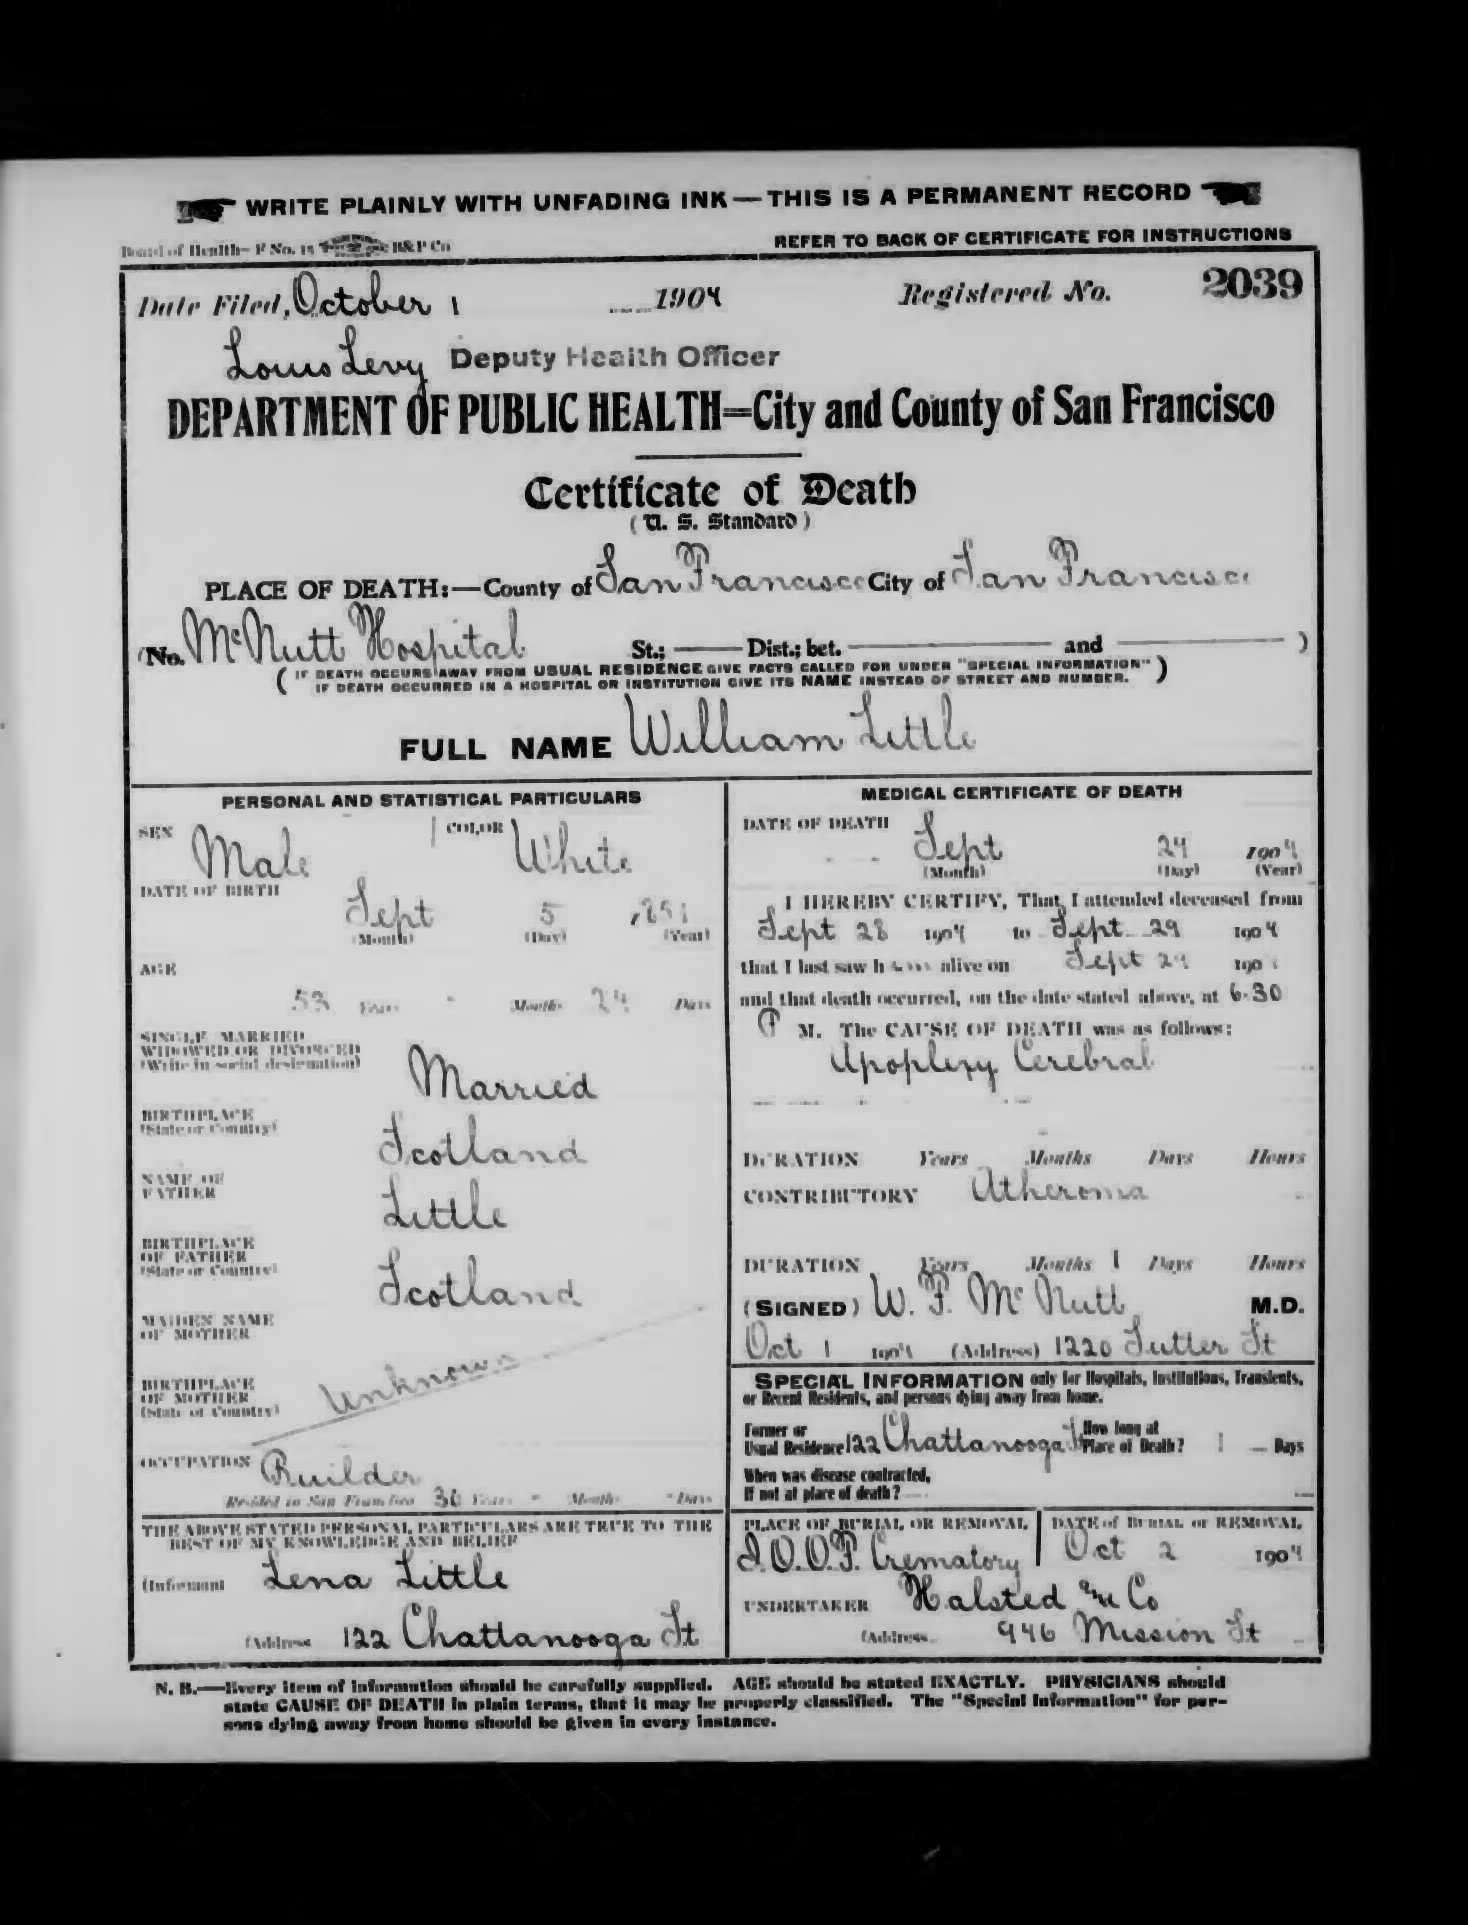 WRITE PLAINLY WITH UNFADING INK — THIS IS A PERMANENT RECORD
Board of Health—F No. 15 B&P Co
REFER TO BACK OF CERTIFICATE FOR INSTRUCTIONS
Date Filed, October 1 1904 Registered No. 2039
Louis Levy Deputy Health Officer
DEPARTMENT OF PUBLIC HEALTH=City and County of San Francisco
Certificate of Death
(U. S. Standard)
PLACE OF DEATH:—County of San Francisco City of San Francisco
(No. McNutt Hospital St.; Dist.; bet. and )
( IF DEATH OCCURS AWAY FROM USUAL RESIDENCE GIVE FACTS CALLED FOR UNDER "SPECIAL INFORMATION" )
( IF DEATH OCCURRED IN A HOSPITAL OR INSTITUTION GIVE ITS NAME INSTEAD OF STREET AND NUMBER. )
FULL NAME William Little
PERSONAL AND STATISTICAL PARTICULARS
SEX Male COLOR White
DATE OF BIRTH
Sept 5 1851
(Month) (Day) (Year)
AGE
53 Years - Months 24 Days
SINGLE MARRIED
WIDOWED OR DIVORCED
(Write in social designation)
Married
BIRTHPLACE
(State or Country)
Scotland
NAME OF
FATHER
Little
BIRTHPLACE
OF FATHER
(State or Country)
Scotland
MAIDEN NAME
OF MOTHER
BIRTHPLACE
OF MOTHER
(State or Country)
Unknown
OCCUPATION Builder
Resided in San Francisco 30 Years - Months - Days
THE ABOVE STATED PERSONAL PARTICULARS ARE TRUE TO THE
BEST OF MY KNOWLEDGE AND BELIEF
(Informant Lena Little
(Address 122 Chattanooga St
MEDICAL CERTIFICATE OF DEATH
DATE OF DEATH
Sept 29 1904
(Month) (Day) (Year)
I HEREBY CERTIFY, That I attended deceased from
Sept 28 1904 to Sept 29 1904
that I last saw him alive on Sept 29 1904
and that death occurred, on the date stated above, at 6.30
P M. The CAUSE OF DEATH was as follows:
Apoplexy Cerebral
DURATION Years Months Days Hours
CONTRIBUTORY Atheroma
DURATION Years Months 1 Days Hours
(SIGNED) W. F. McNutt M.D.
Oct 1 1904 (Address) 1220 Sutter St
SPECIAL INFORMATION only for Hospitals, Institutions, Transients,
or Recent Residents, and persons dying away from home.
Former or
Usual Residence 122 Chattanooga St
How long at
Place of Death? 1 Days
When was disease contracted,
If not at place of death?
PLACE OF BURIAL OR REMOVAL
I.O.O.F. Crematory
DATE of BURIAL or REMOVAL
Oct 2 1904
UNDERTAKER Halsted & Co
(Address 946 Mission St
N. B.—Every item of information should be carefully supplied. AGE should be stated EXACTLY. PHYSICIANS should
state CAUSE OF DEATH in plain terms, that it may be properly classified. The "Special Information" for per-
sons dying away from home should be given in every instance.